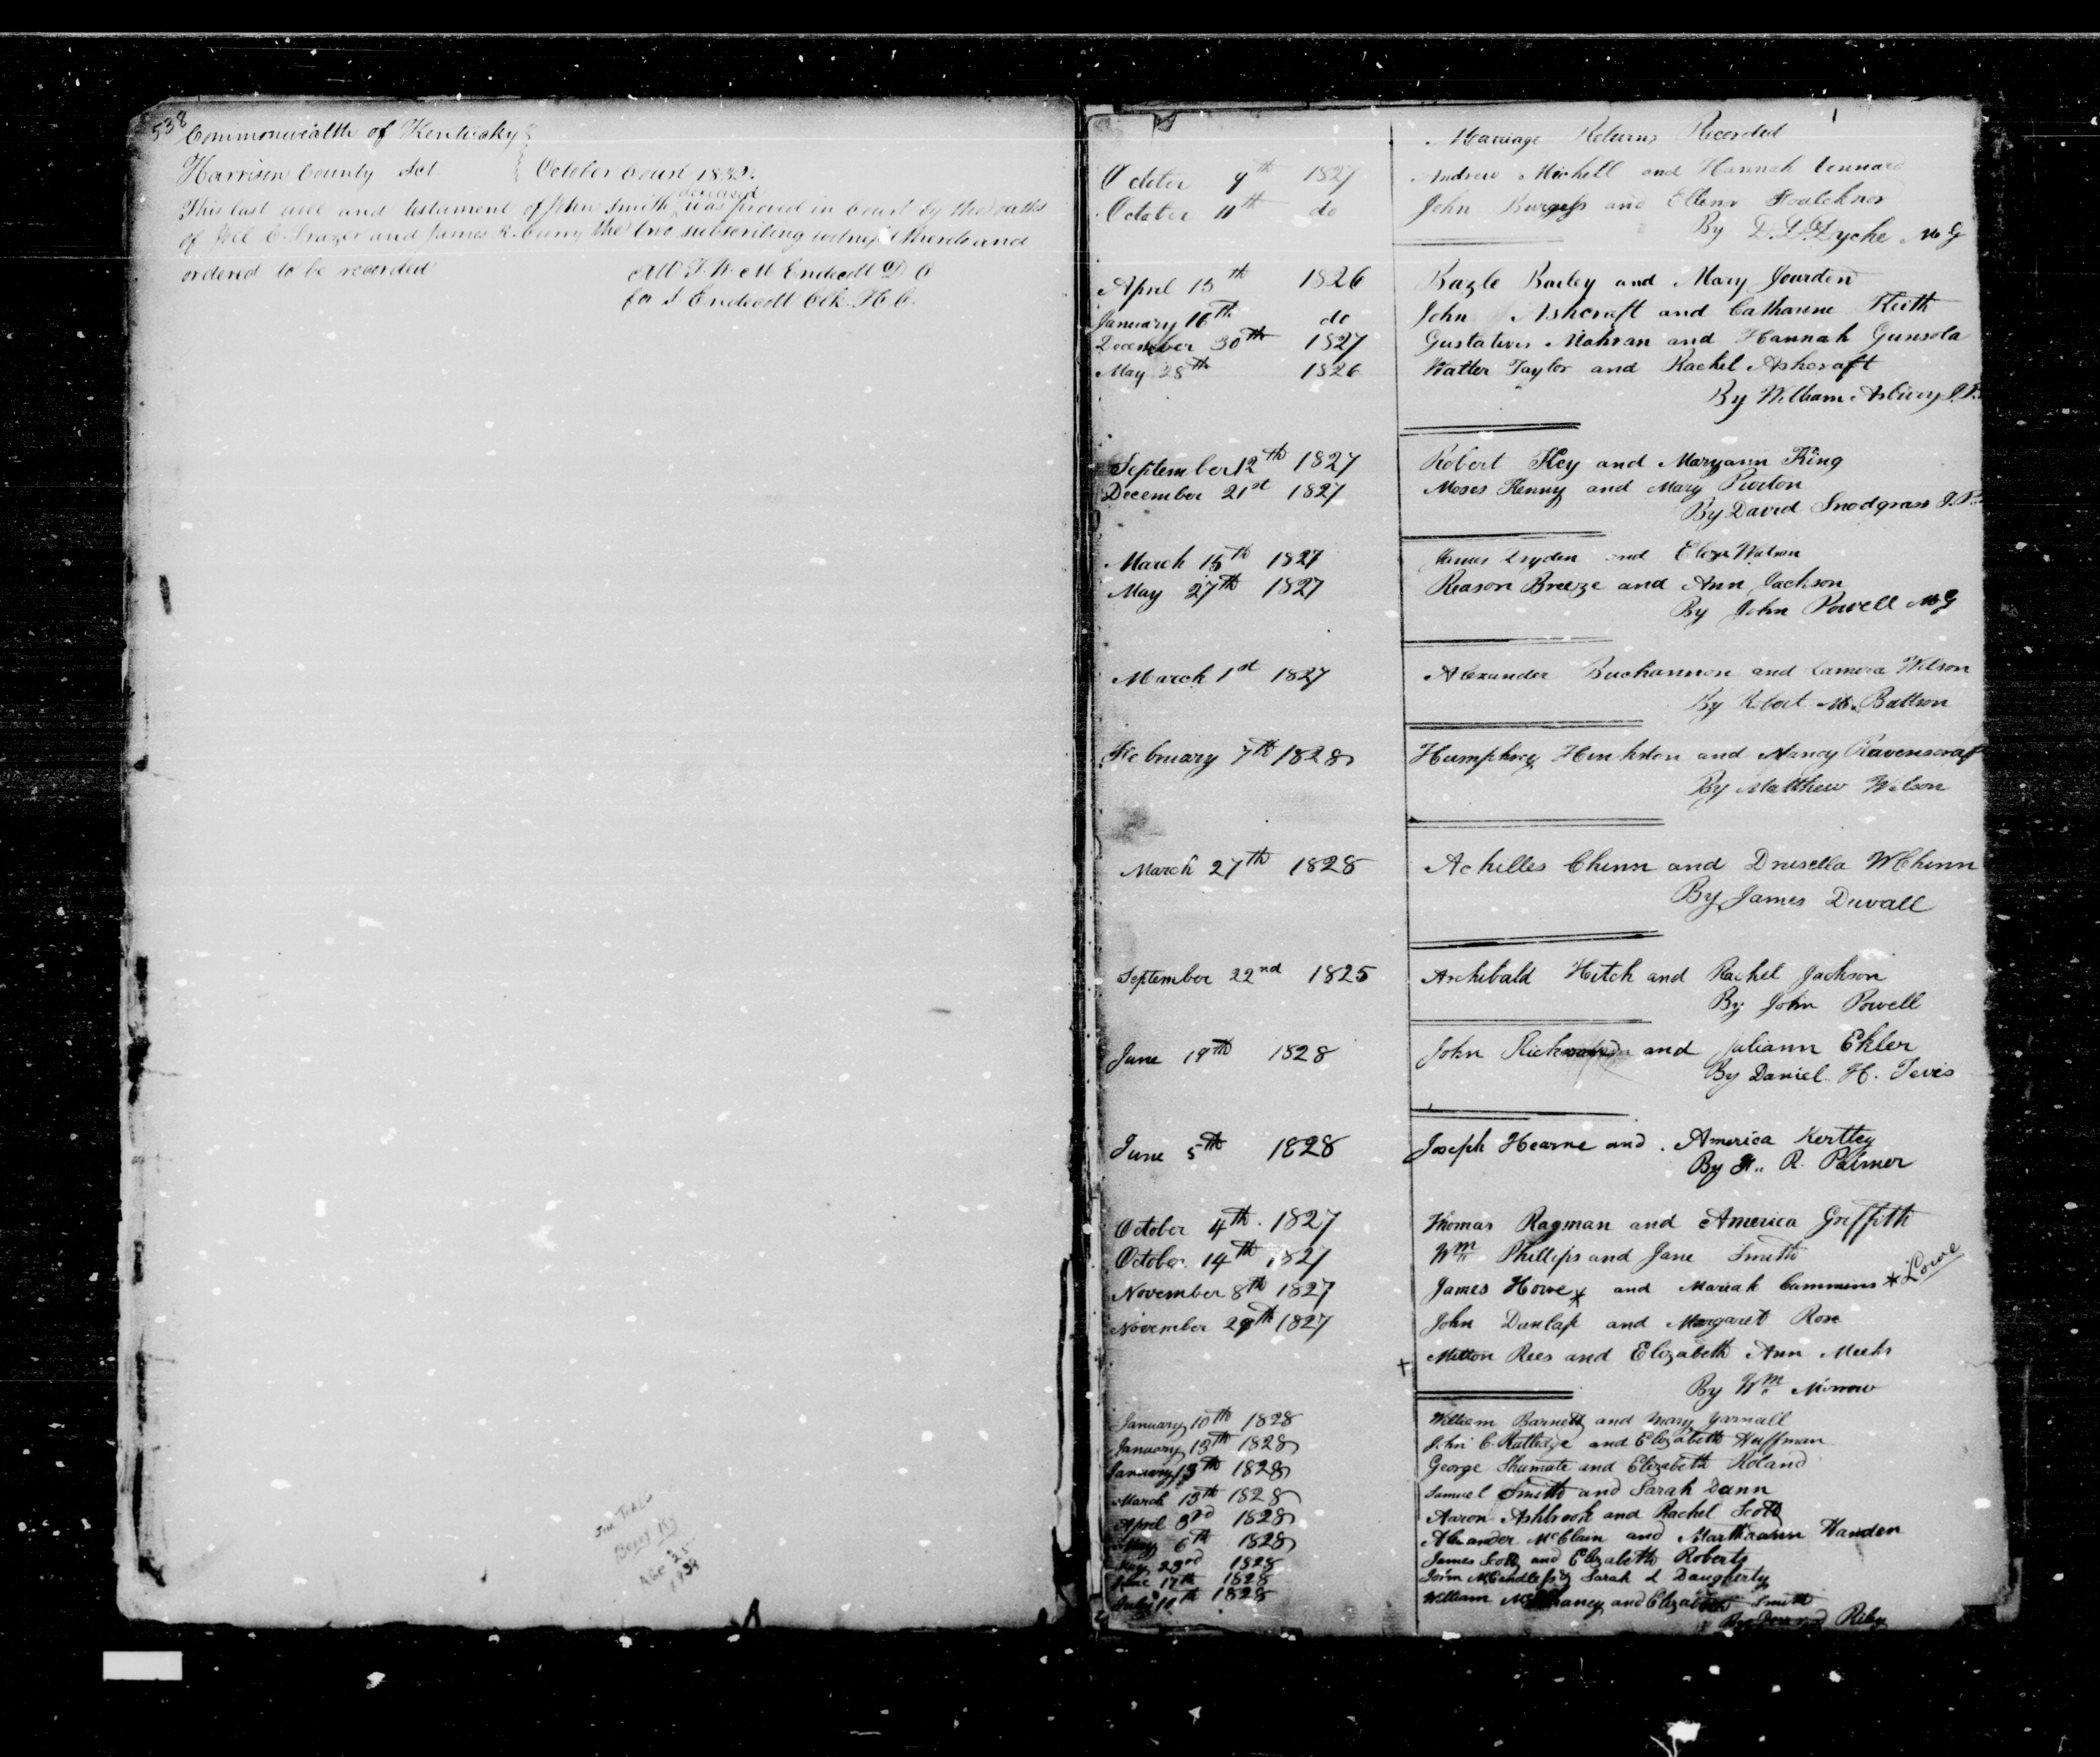 538
Commonwealth of Kentucky
Harrison County Sct. October Court 1832.
This last will and testament of John Smith deceased was proved in Court by the oaths
of Joel C. Frazer and James R. Curry the two subscribing witnesses thereto and
ordered to be recorded
Att T. W. M Endecott D C
for J Endecott Clk. H. C.
Berry Ky
Age 25
1939
Marriage Returns Recorded
October 9th 1827 Andrew Michell and Hannah Lennard
October 11th do John Burgess and Ellenr Foulcknor
By
April 13th 1826 Bazle Bailey and Mary Jourden
January 16th do John Ashcraft and Catharine Keith
December 30th 1827 Gustatives Mahran and Hannah Gunsola
May 28th 1826 Walter Taylor and Rachel Ashcraft
By William Asbury J.P.
September 12th 1827 Robert Key and Maryann King
December 21st 1827 Moses Kenny and Mary Purton
By David Snodgrass J.P.
March 15th 1827 James Dryden and Eliza Watson
May 27th 1827 Reason Breeze and Ann Jackson
By John Powell MG
March 1st 1827 Alexander Buchannon and Lamira Wilson
By Robert M. Battson
February 7th 1828 Humphrey Hinkston and Nancy Ravenscraft
By Matthew Wilson
March 27th 1828 Achilles Chinn and Drusella W Chinn
By James Duvall
September 22nd 1825 Archibald Hitch and Rachel Jackson
By John Powell
June 19th 1828 John and Juliann Ekler
By Daniel H. Tevis
June 5th 1828 Joseph Hearne and America Kertley
By H. R. Palmer
October 4th 1827 Thomas Ragman and America Griffith
October 14th 1827 Wm Phillips and Jane Smith
November 8th 1827 James Howe * and Mariah Cummins * Lowe
November 29th 1827 John Dunlap and Margaret Rose
+ Milton Rees and Elizabeth Ann Meeks
By Wm Morrow
January 10th 1828 William Barnett and Mary Yarnall
January 13th 1828 John C. Rutledge and Elizabeth Huffman
January 13th 1828 George Shumate and Elizabeth Roland
March 13th 1828 Samuel Smith and Sarah Dann
April 3rd 1828 Aaron Ashbrook and Rachel Scott
May 6th 1828 Alexander McClain and Marthaann Handen
May 22nd 1828 James Scott and Elizabeth Roberts
June 17th 1828 John McCandless & Sarah L Daugherty
July 10th 1828 William and Elizabeth Smith
By Riley